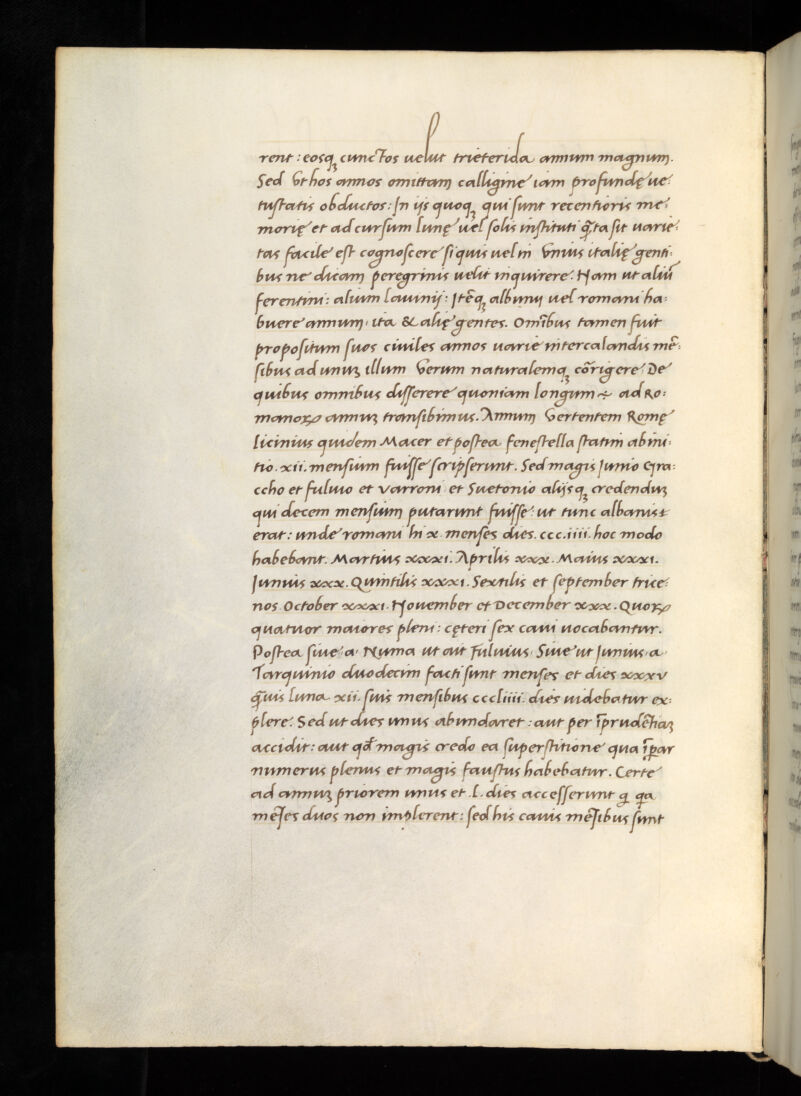 rent: eosqꝫ cunctos uelut trieterida annum magnum.
Sed Vt hos annos omittam calligine iam profundę ue:
tustatis obductos: In ijs quoqꝫ qui sunt recentioris me:
morię et ad cursum lunę uel solis instituti q̄ta sit uarie:
tas facile est cognoscere si quis uel in Vnius italię genti:
bus ne dicam peregrinis uelit inquirere. Nam ut aliū
ferentini: alium lauinij: Itēqꝫ albani uel romani ha:
buere annum: ita & alię gentes. Omībus tamen fuit
propositum suos ciuiles annos uarie intercalandis mē:
sibus ad unuꝫ illum Verum naturalemqꝫ cōrigere. De
quibus omnibus disserere quoniam longum ÷ ad Ro:
manoꝝ annuꝫ transibimus. Annum Vertentem Romę
licinius quidem Macer et postea fenestella statim ab ini:
tio .xii. mensium fuisse scripserunt. Sed magis Junio Gra:
ccho et fuluio et Varroni et Suetonio alijsqꝫ credenduꝫ
qui decem mensium putarunt fuisse: ut tunc albanis
erat: unde romani hi x menses dies .ccc.iiii. hoc modo
habebant. Martius xxxi. Aprilis xxx. Maius xxxi.
Junius xxx. Quintilis xxxi. Sextilis et september trice:
nos October xxxi. Nouember et December xxx. Quoꝝ
quatuor maiores pleni: cęteri sex caui uocabantur.
Postea siue a Numa ut ait fuluius, Siue ut Junius a
Tarquinio duodecim facti sunt menses et dies xxxv
q̄uis luna .xii. suis mensibus cccliiii. dies uidebatur ex:
plere. Sed ut dies unus abundaret: aut per īprudētiaꝫ
accidit: aut qd̄ magis credo ea superstitione qua īpar
numerus plenus et magis faustus habebatur. Certe
ad annuꝫ priorem unus et .l. dies accesserunt q̄ qa
mēses duos non implerent: sed his cauis mēsibus sunt